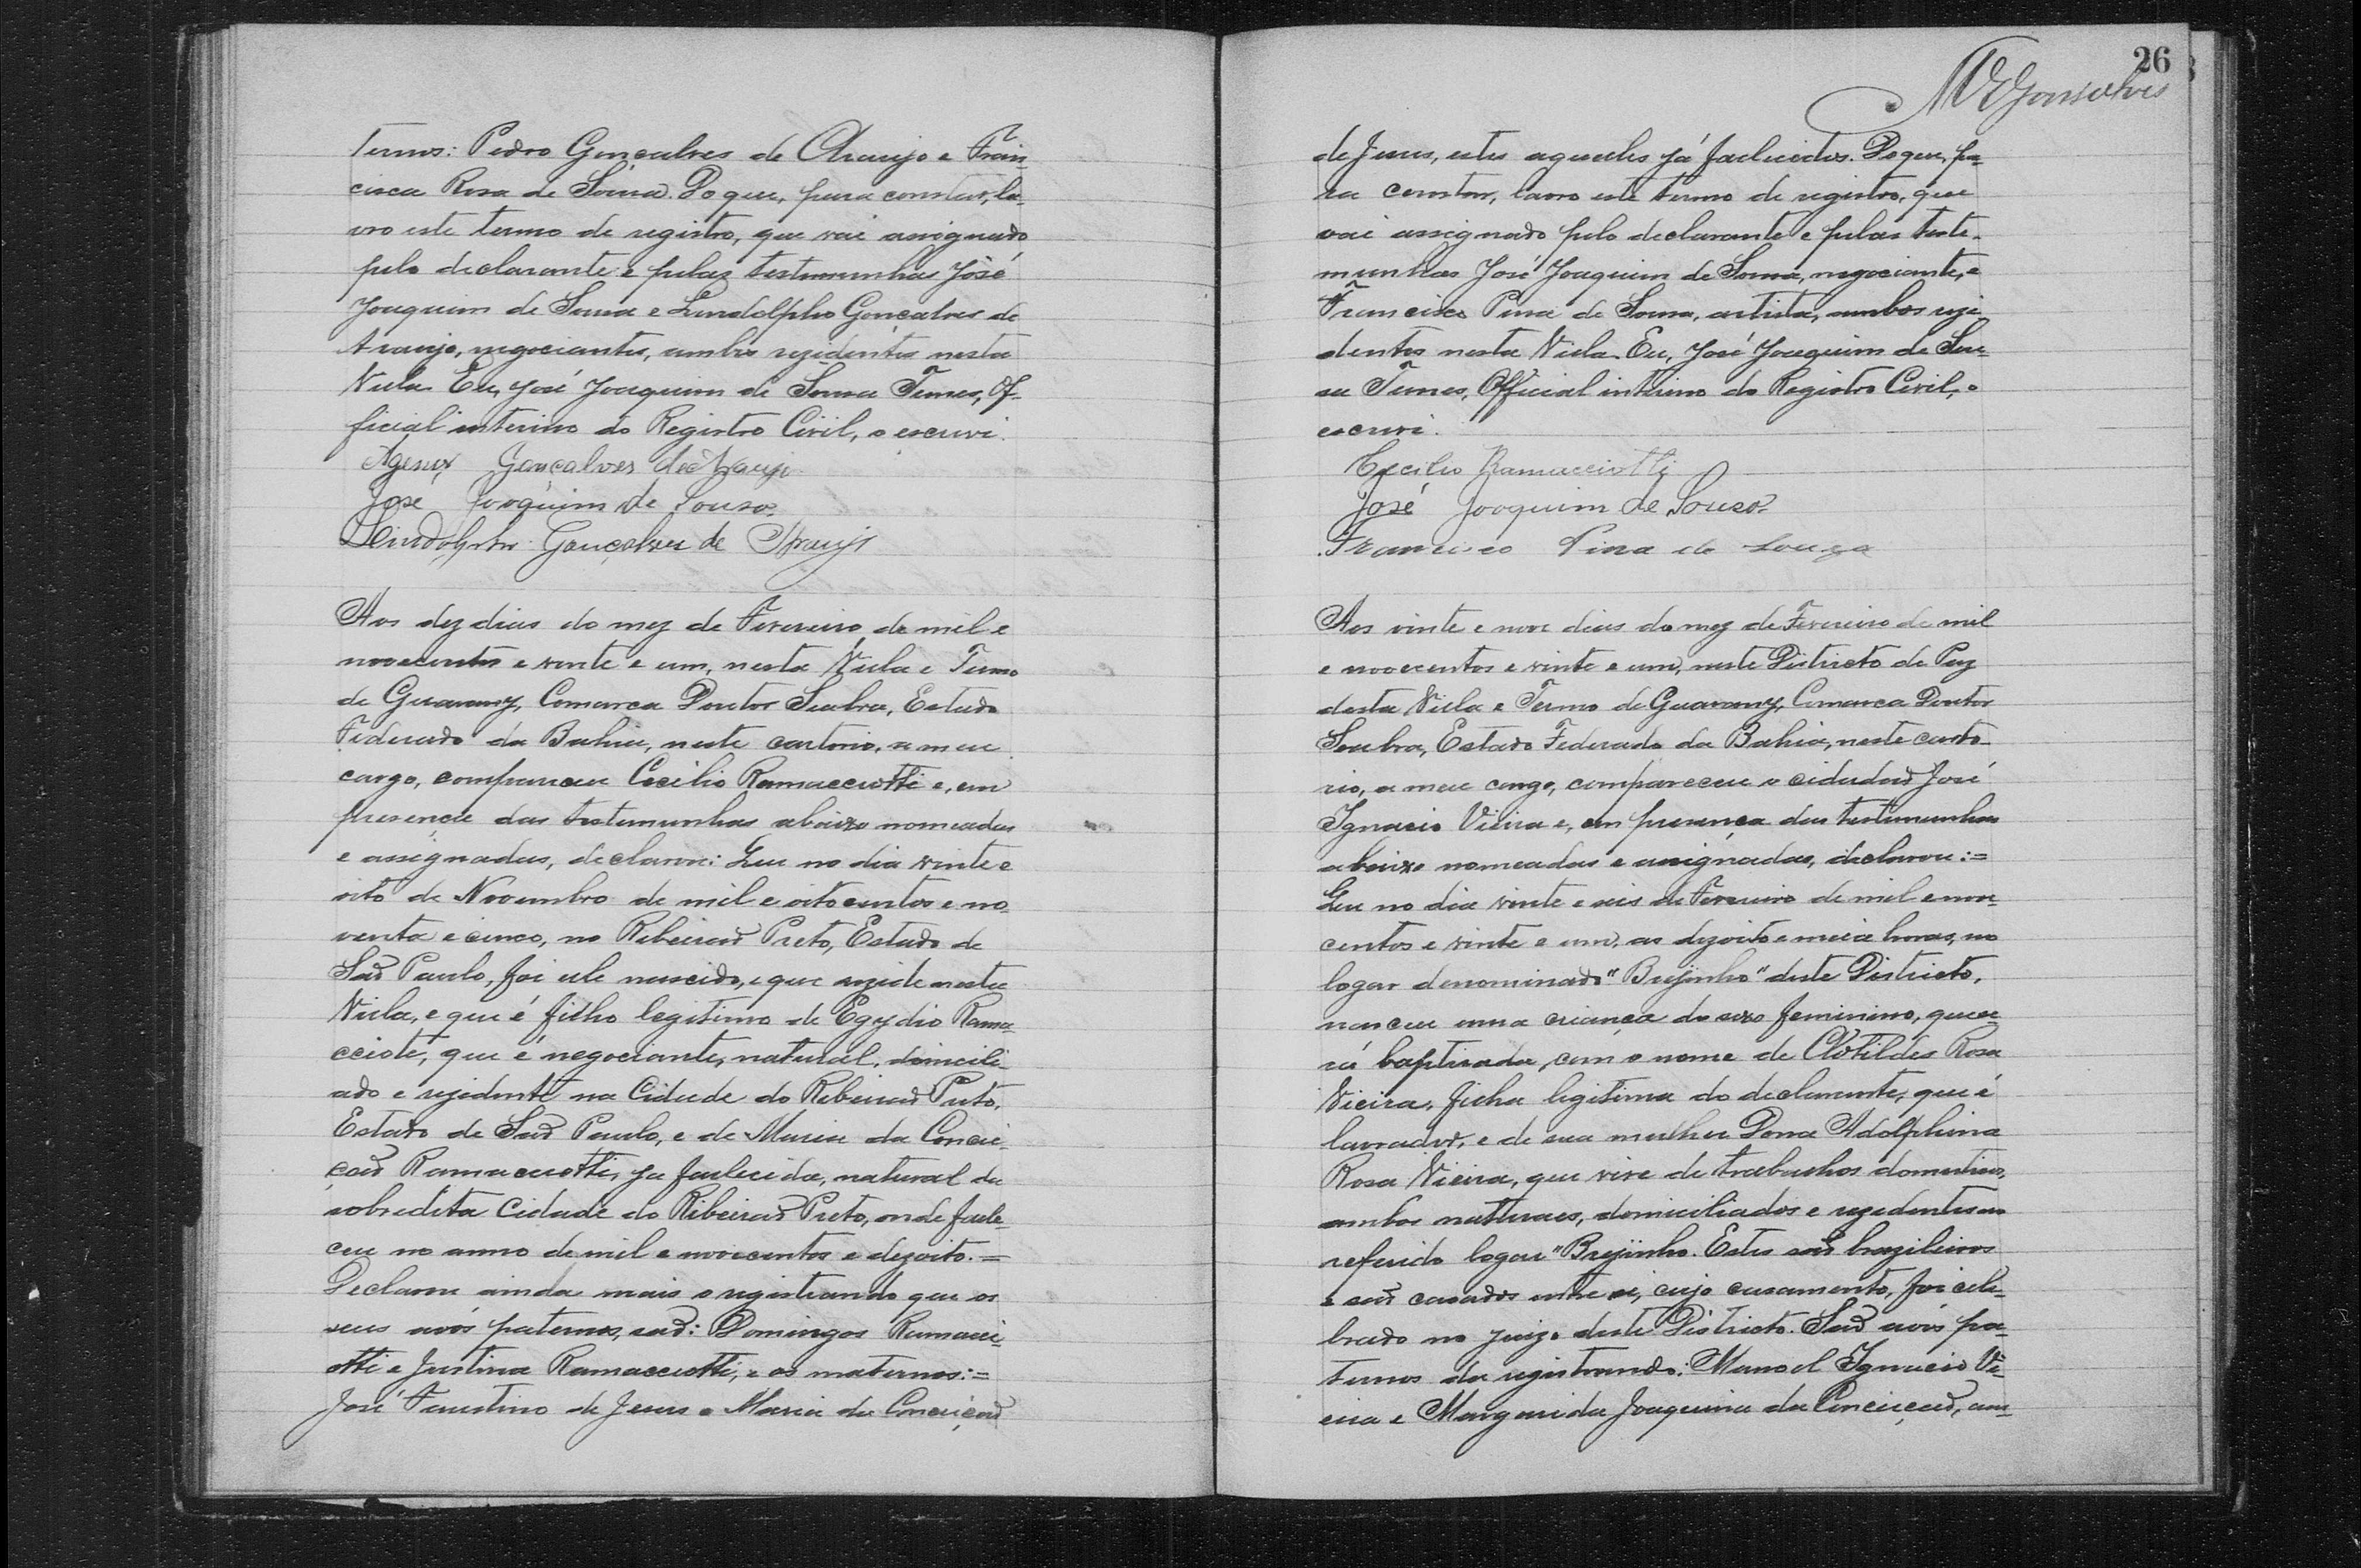 ternos: Pedro Gonçalves de Araujo e Fran-
cisca Rosa de Souza. Do que, para constar, la-
vro este termo de registro, que vai assignado
pelo declarante e pelas testemunhas José
Joaquim de Sousa e Lindolpho Gonçalves de
Araujo, negociantes, ambos rezidentes nesta
Villa. Eu, José Joaquim de Sousa Of-
ficial interino do Registro Civil, o escrevi.
Gonçalves de Araujo
José Joaquim de Souza
Lindolpho Gonçalves de Araujo
Aos dez dias do mez de Fevereiro de mil e
novecentos e vinte e um, nesta Villa e Termo
de Guarany, Comarca Doutor Seabra, Estado
Federado da Bahia, neste cartorio, a meu
cargo, compareceu Cecilio Ramacciotti e, em
presença das testemunhas abaixo nomeadas
e assignadas, declarou: Que no dia vinte e
oito de Novembro de mil e oitocentos e no-
venta e cinco, no Ribeirão Preto, Estado de
São Paulo, foi elle nascido, e que rezide nesta
Villa, e que é filho legitimo de Egydio Rama-
cciote, que é negociante, natural, domicili-
ado e rezidente na Cidade do Ribeirão Preto,
Estado de São Paulo, e de Maria da Concei-
ção Ramacciotti, ja fallecida, natural da
sobredita Cidade do Ribeirão Preto, onde falle-
ceu no anno de mil e novecentos e dezoito. =
Declarou ainda mais o registrando que os
seus avós paternos, são: Domingos Ramacci-
otti e Justina Ramacciotti, e os maternos: =
José Faustino de Jesus e Maria da Conceição
26
Gonsalves
de Jesus, estes aquelles já fallecidos. Do que, pa-
ra constar, lavro este termo de registro, que
vai assignado pelo declarante e pelas teste-
munhas José Joaquim de Sousa, negociante, e
Francisco Pina de Sousa, artista, ambos rezi-
dentes nesta Villa. Eu, José Joaquim de Sou-
sa Official interino do Registro Civil, o
escrevi.
Cecilio Ramacciotti
José Joaquim de Souza
Francisco Pina de Souza
Aos vinte e nove dias do mez de Fevereiro de mil
e novecentos e vinte e um, neste Districto de Paz
desta Villa e Termo de Guarany, Comarca Doutor
Seabra, Estado Federado da Bahia, neste carto-
rio, a meu cargo, compareceu o cidadão José
Ignacio Vieira e, em presença das testemunhas
abaixo nomeadas e assignadas, declarou: =
Que no dia vinte e seis de Fevereiro de mil e nove-
centos e vinte e um, as dezoito e meia horas, no
logar denominado "Brejinho" deste Districto,
nasceu uma criança do sexo feminino, que se-
rá baptizada com o nome de Clotildes Rosa
Vieira, filha legitima do declarante, que é
lavrador, e de sua mulher Dona Adolphina
Rosa Vieira, que vive de trabalhos domesticos,
ambos naturaes, domiciliados e rezidentes no
referido logar "Brejinho. Estes são brazileiros
e são casados entre si, cujo casamento, foi cele-
brado no juizo deste Districto. São avós pa-
ternos da registrando: Manoel Ignacio Vi-
eira e Margarida Joaquina da Conceição, am-